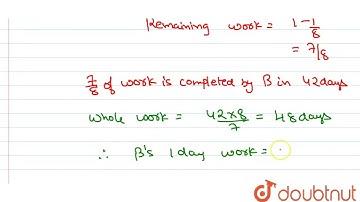 Remaining work = 1 - 1/8
= 7/8
7/8 of work is completed by B in 42days
Whole work = 42×8/7 = 48days
∴ B's 1 day work =
doubtnut